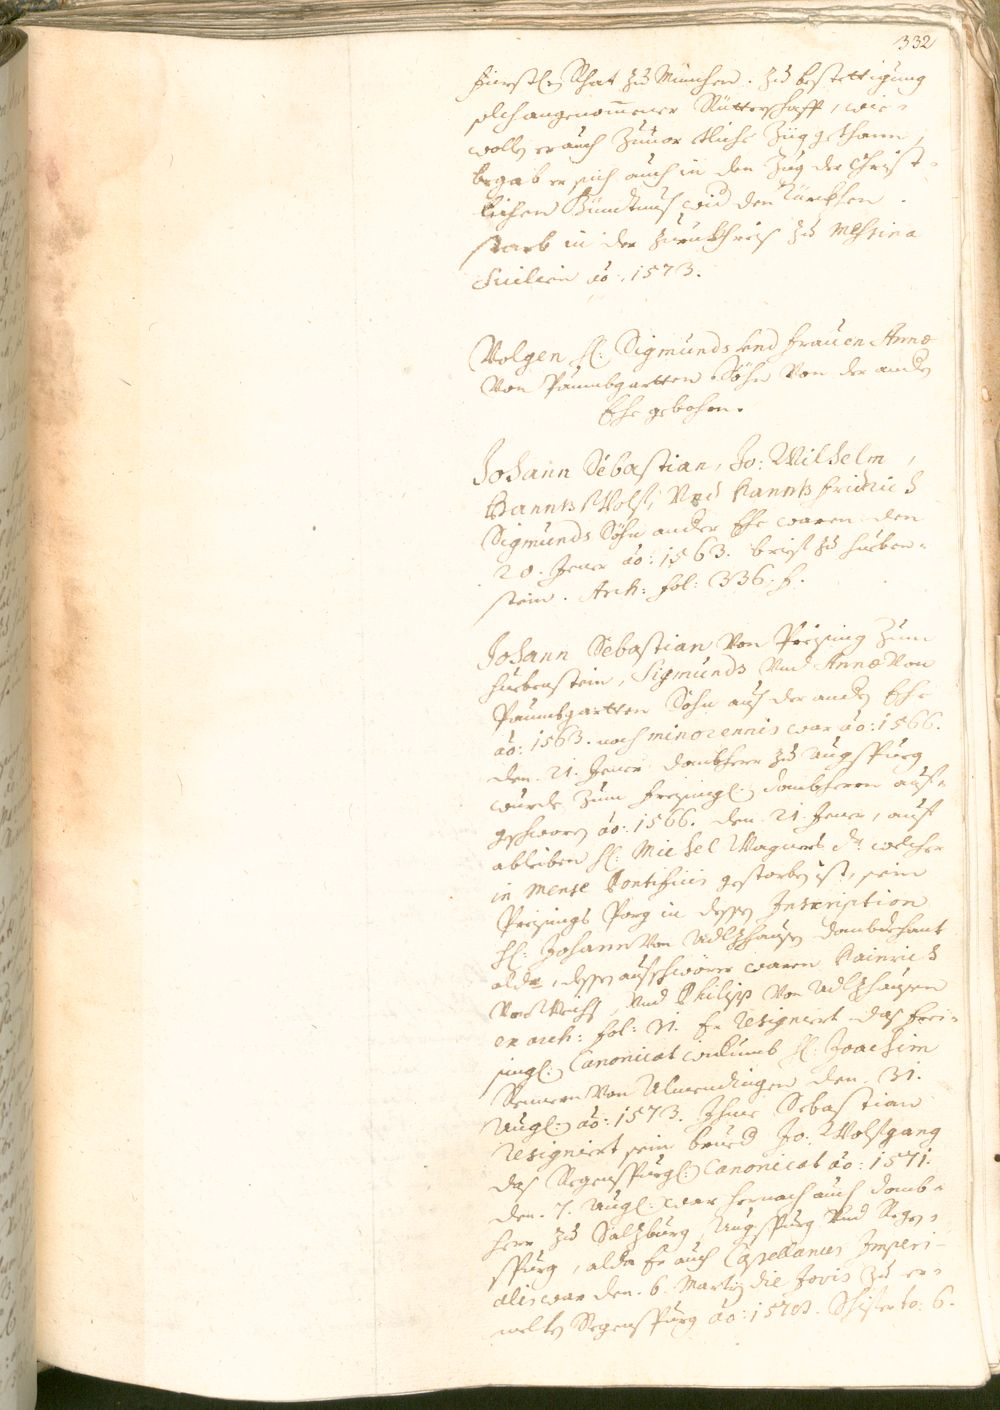 332
fürstl: Rhat zu München. zu bestettigung
solch angenommener Ritterschafft, wie-
woll er auch zuuor etliche Züg gethann,
begab er sich auch in den Zug der Christ-
lichen Bündtnus wid den Türckhen.
starb in der zuruckhreis zu Messina
Sicilien ao. 1573.
Volgen H: Sigmunds vnd frauen Annæ
Von Paumbgartten Söhn Von der andern
Ehe gebohrn.
Johann Sebastian, Jo: Wilhelm,
Hannß Wolf, Vnd Hannß Fridrich
Sigmunds Söhn ander Ehe waren den
20. Jener ao: 1563. brief zu Hueben-
stein. Arch: fol: 336. f.
Johann Sebastian Von Preising Zum
Huebenstein, Sigmunds Vnd Annæ Von
Paumbgartten Sohn auß der andern Ehe
ao: 1563. noch minorennis war ao: 1566.
den 21. Jener dombherr zu Augspurg
wurde zum freisingl: dombherrn auf-
geschworn ao: 1566. den 21. Jener, auf
ableiben H: Michel Wagners Dr. welcher
in Mense Pontificis gestorben ist, sein
Preisings Prog in dessen Inscription
H: Johann Von Adlzhausen dombdechant
alda, dessen aufschwörer waren Hainrich
Vnd Philipp Von Adlzhausen
ex arch: fol: 31. Er resigniert das frei-
singl: Canonicat widerumb H: Joachim
Von Almendingen den 31.
Augl: ao: 1573. Ihme Sebastian
resigniert sein brued Jo: Wolfgang
das Regenspurgl: Canonicat ao: 1571.
den 7. Augl: war hernach auch domb-
herr zu Salzburg, Augspurg Vnd Regen-
spurg, alda Er auch Capellanus Imperi-
alis war den 6. Martij die Jovis zu er-
welten Regenspurg